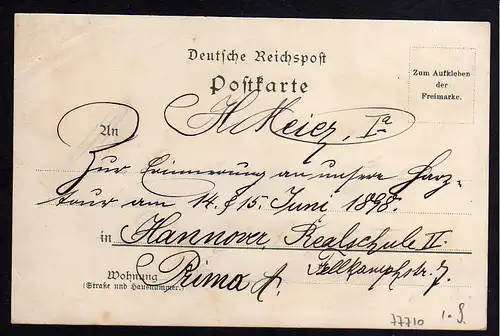 Deutsche Reichspost
Postkarte
Zum Aufkleben
der
Freimarke.
An
H. Meier, Ia
Zur Erinnerung an unsere Harz-
tour am 14. & 15. Juni 1898.
in Hannover, Realschule II.
Wohnung Prima A. Fellkampstr. 7.
(Straße und Hausnummer.)
77710 1.9.